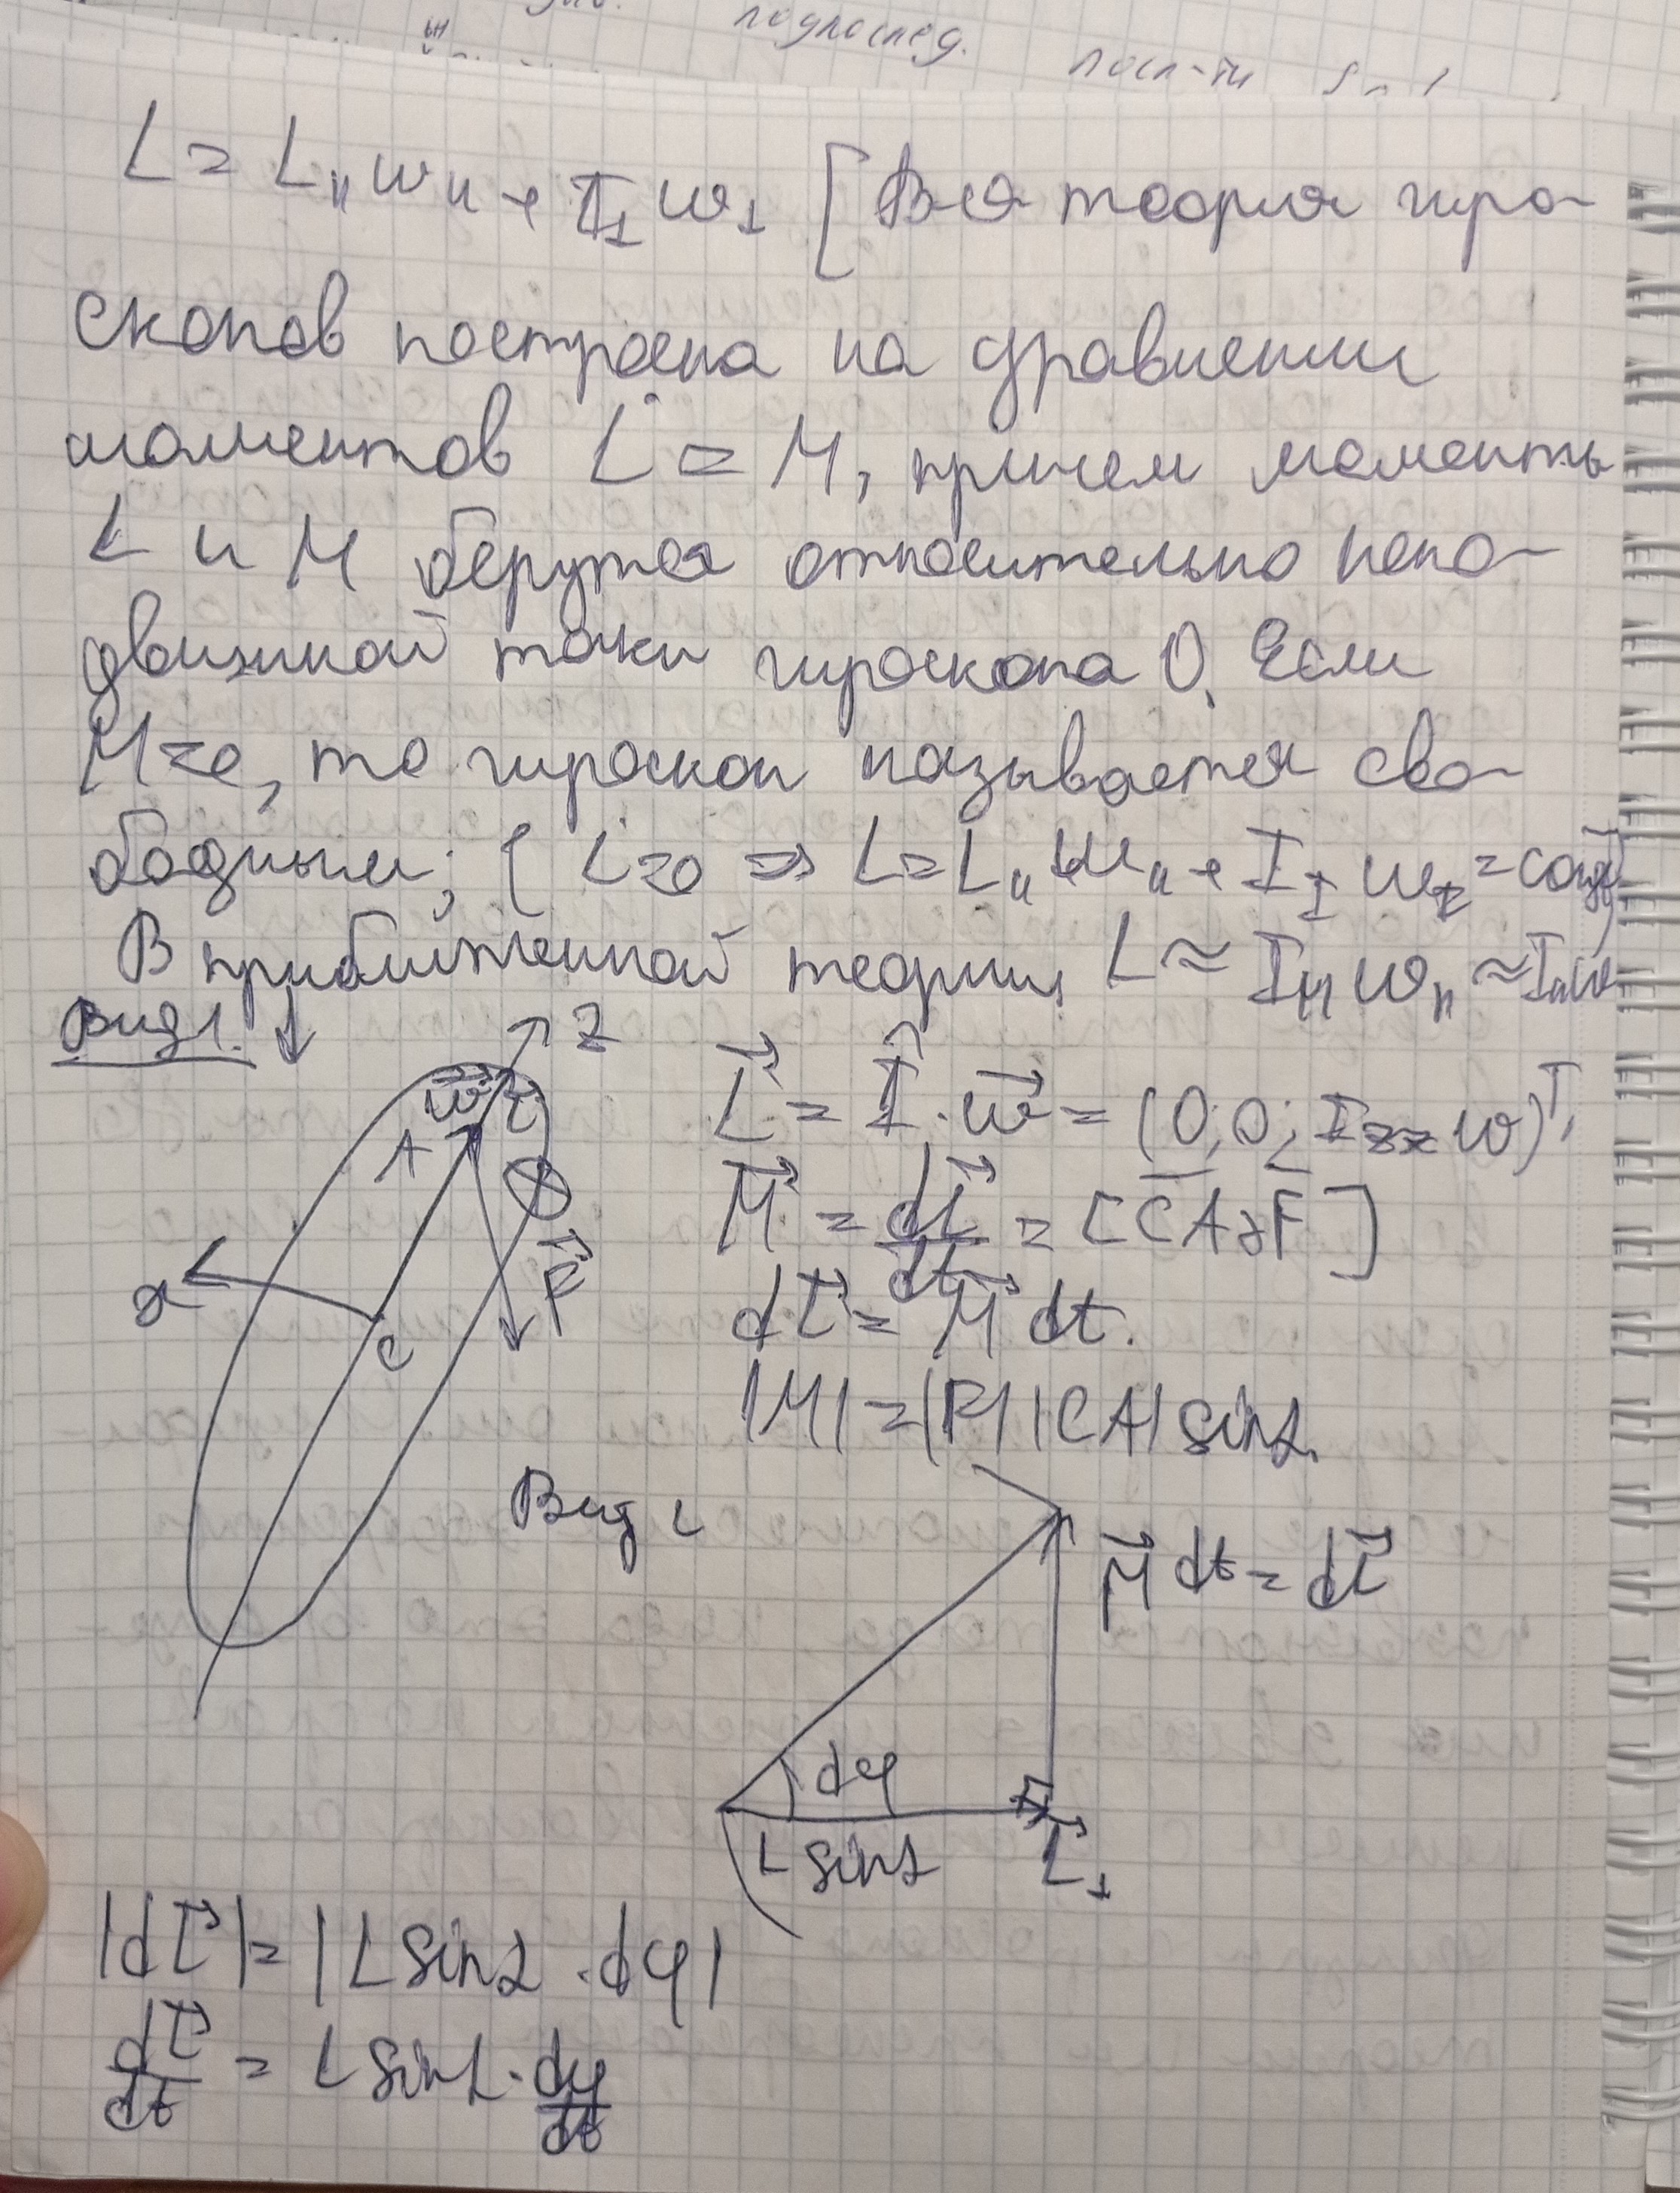 подпослед.
посл-ти
L = L_{||} ω_{||} + I_⊥ ω_⊥ [Вся теория гиро-
скопов построена на уравнении
моментов L̇ = M, причем моменты
L и M берутся относительно непо-
движной точки гироскопа O. Если
M=0, то гироскоп называется сво-
бодным; [L̇=0 => L=L_{||} ω_{||} + I_⊥ ω_⊥ = const]
В приближенной теории L ≈ I_{||} ω_{||} ≈ I_{||} ω
Вид 1. ↓
Z
ω⃗ L⃗
A
F⃗
x
C
L⃗ = Î · ω⃗ = (0; 0; I_{zz} ω)^T;
M⃗ = dL⃗/dt = [CA × F]
dL⃗ = M⃗ dt.
|M| = |F| |CA| sin α.
Вид ↓
M⃗ dt = dL⃗
dφ
L sin α
L⃗_⊥
|dL⃗| = |L sin α · dφ|
dL⃗/dt = L sin α · dφ/dt